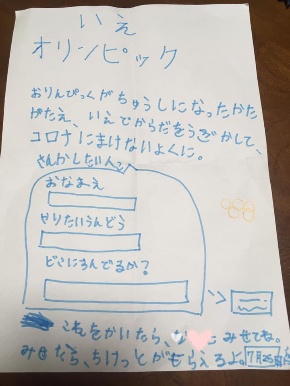 いえ
オリンピック
おりんぴっくがちゅうしになったかた
がたえ、いえでからだをうごかして、
コロナにまけないよくに。
さんかしたい人〜
おなまえ
やりたいうんどう
どこにすんでるか?
これをかいたら、 にみせてね。
みせたら、ちけっとがもらえるよ。7月25